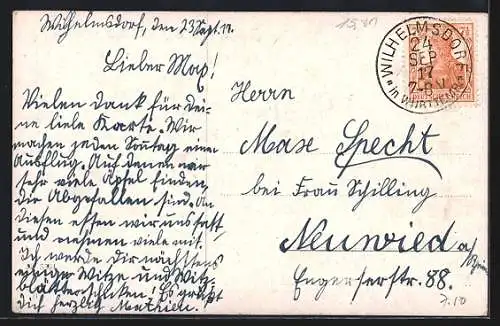 Wilhelmsdorf, den 23 Sept. 17.
Lieber Max!
Vielen Dank für Dei-
ne liebe Karte. Wir
machen jeden Sonntag einen
Ausflug. Auf denen wir
sehr viele Äpfel finden,
die Abgefallen sind. An
diesen essen wir uns satt
und nehmen viele mit.
Ich werde dir nächstens
einige Witze und Witz-
blätter schicken. Es grüßt
dich herzlich
WILHELMSDORF
24
SEP
17
7-8 N
* in WÜRTTEMB *
Herrn
Max Specht
bei Frau Schilling
Neuwied a/Rhein
Engerserstr. 88.
7.10